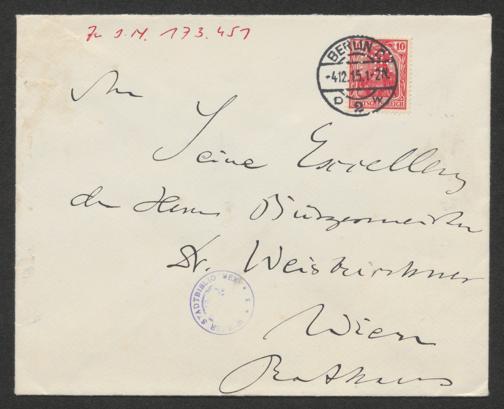 Zu I.N. 173.451
BERLIN
-4.12.15.1-2N.
10
DEUTSCHES REICH
An
Seine Excellenz
den Herrn Bürgermeister
Dr. Weiskirchner
WIENER STADTBIBLIOTHEK
Wien
Rathaus